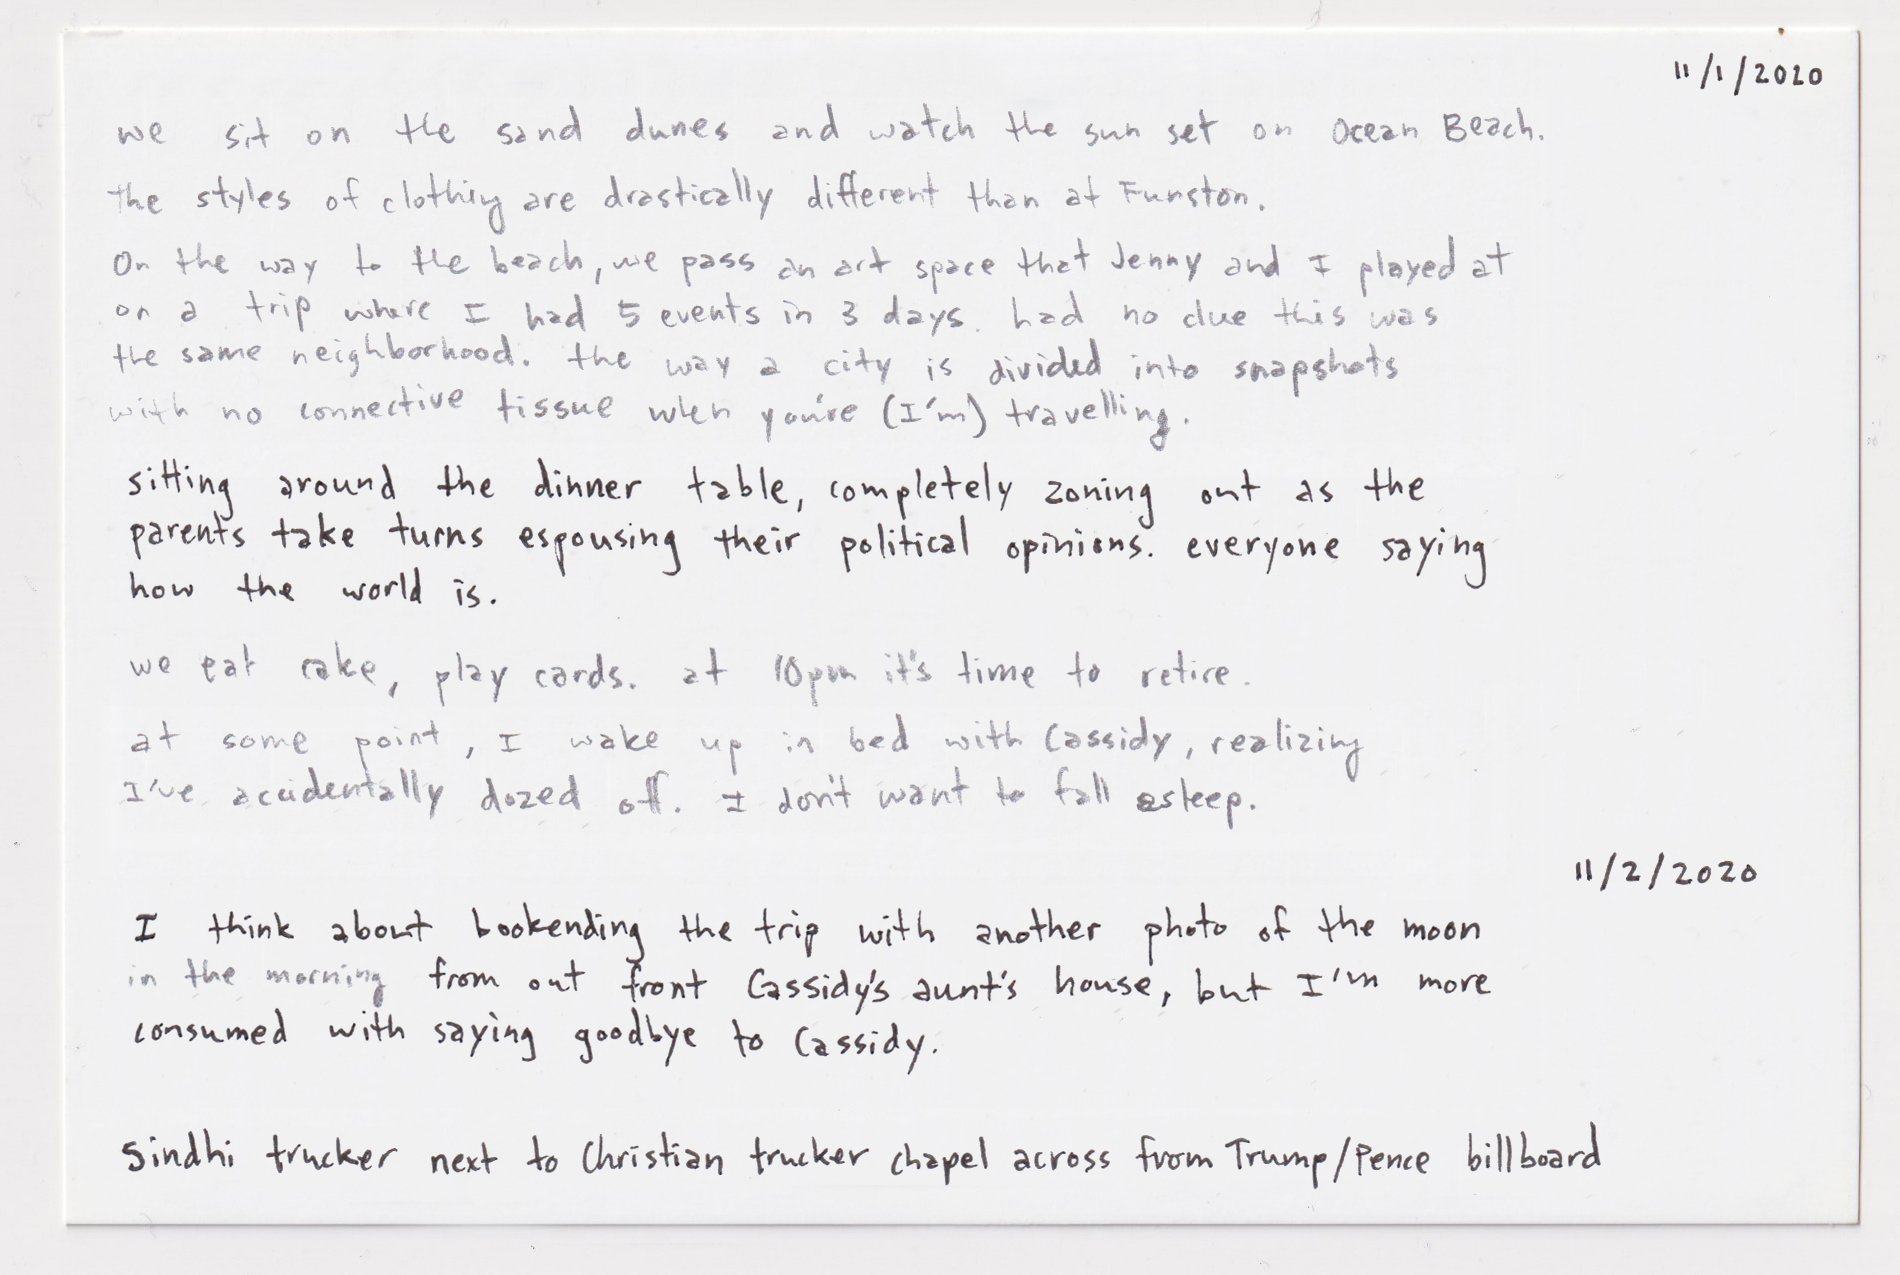 11/1/2020
we sit on the sand dunes and watch the sun set on Ocean Beach.
the styles of clothing are drastically different than at Funston.
On the way to the beach, we pass an art space that Jenny and I played at
on a trip where I had 5 events in 3 days. had no clue this was
the same neighborhood. the way a city is divided into snapshots
with no connective tissue when you're (I'm) travelling.
sitting around the dinner table, completely zoning out as the
parents take turns espousing their political opinions. everyone saying
how the world is.
we eat cake, play cards. at 10pm it's time to retire.
at some point, I wake up in bed with Cassidy, realizing
I've accidentally dozed off. I don't want to fall asleep.
11/2/2020
I think about bookending the trip with another photo of the moon
in the morning from out front Cassidy's aunt's house, but I'm more
consumed with saying goodbye to Cassidy.
Sindhi trucker next to Christian trucker chapel across from Trump/Pence billboard